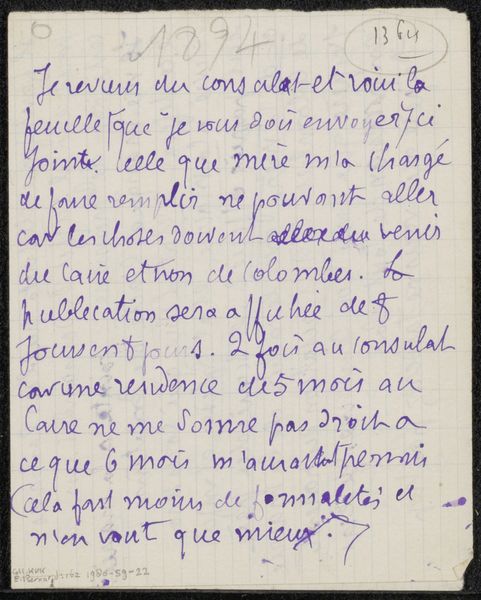 1894
13 Gu
Je reviens du consulat et voici la
feuille que je vous dois envoyer ci
jointe. celle que mère m'a chargé
de faire remplir ne pouvant aller
car les choses doivent venir
du Caire et non de Colombes. La
publication sera affichée de 8
jours en 8 jours. 2 fois au consulat
car une residence de 5 mois au
Caire ne me donne pas droit a
ce que 6 mois m'aurait permis
Cela fait moins de formalités et
n'en vaut que mieux.
1986-59-22